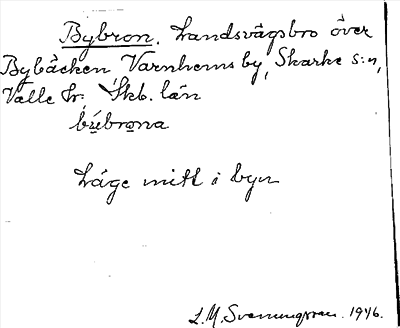 Bybron. Landsvägsbro över
Bybäcken Varnhems by, Skarke s:n,
Valle hr. Skb. län
bẏ́brọna
Läge mitt i byn
L. M. Svenungsson. 1946.